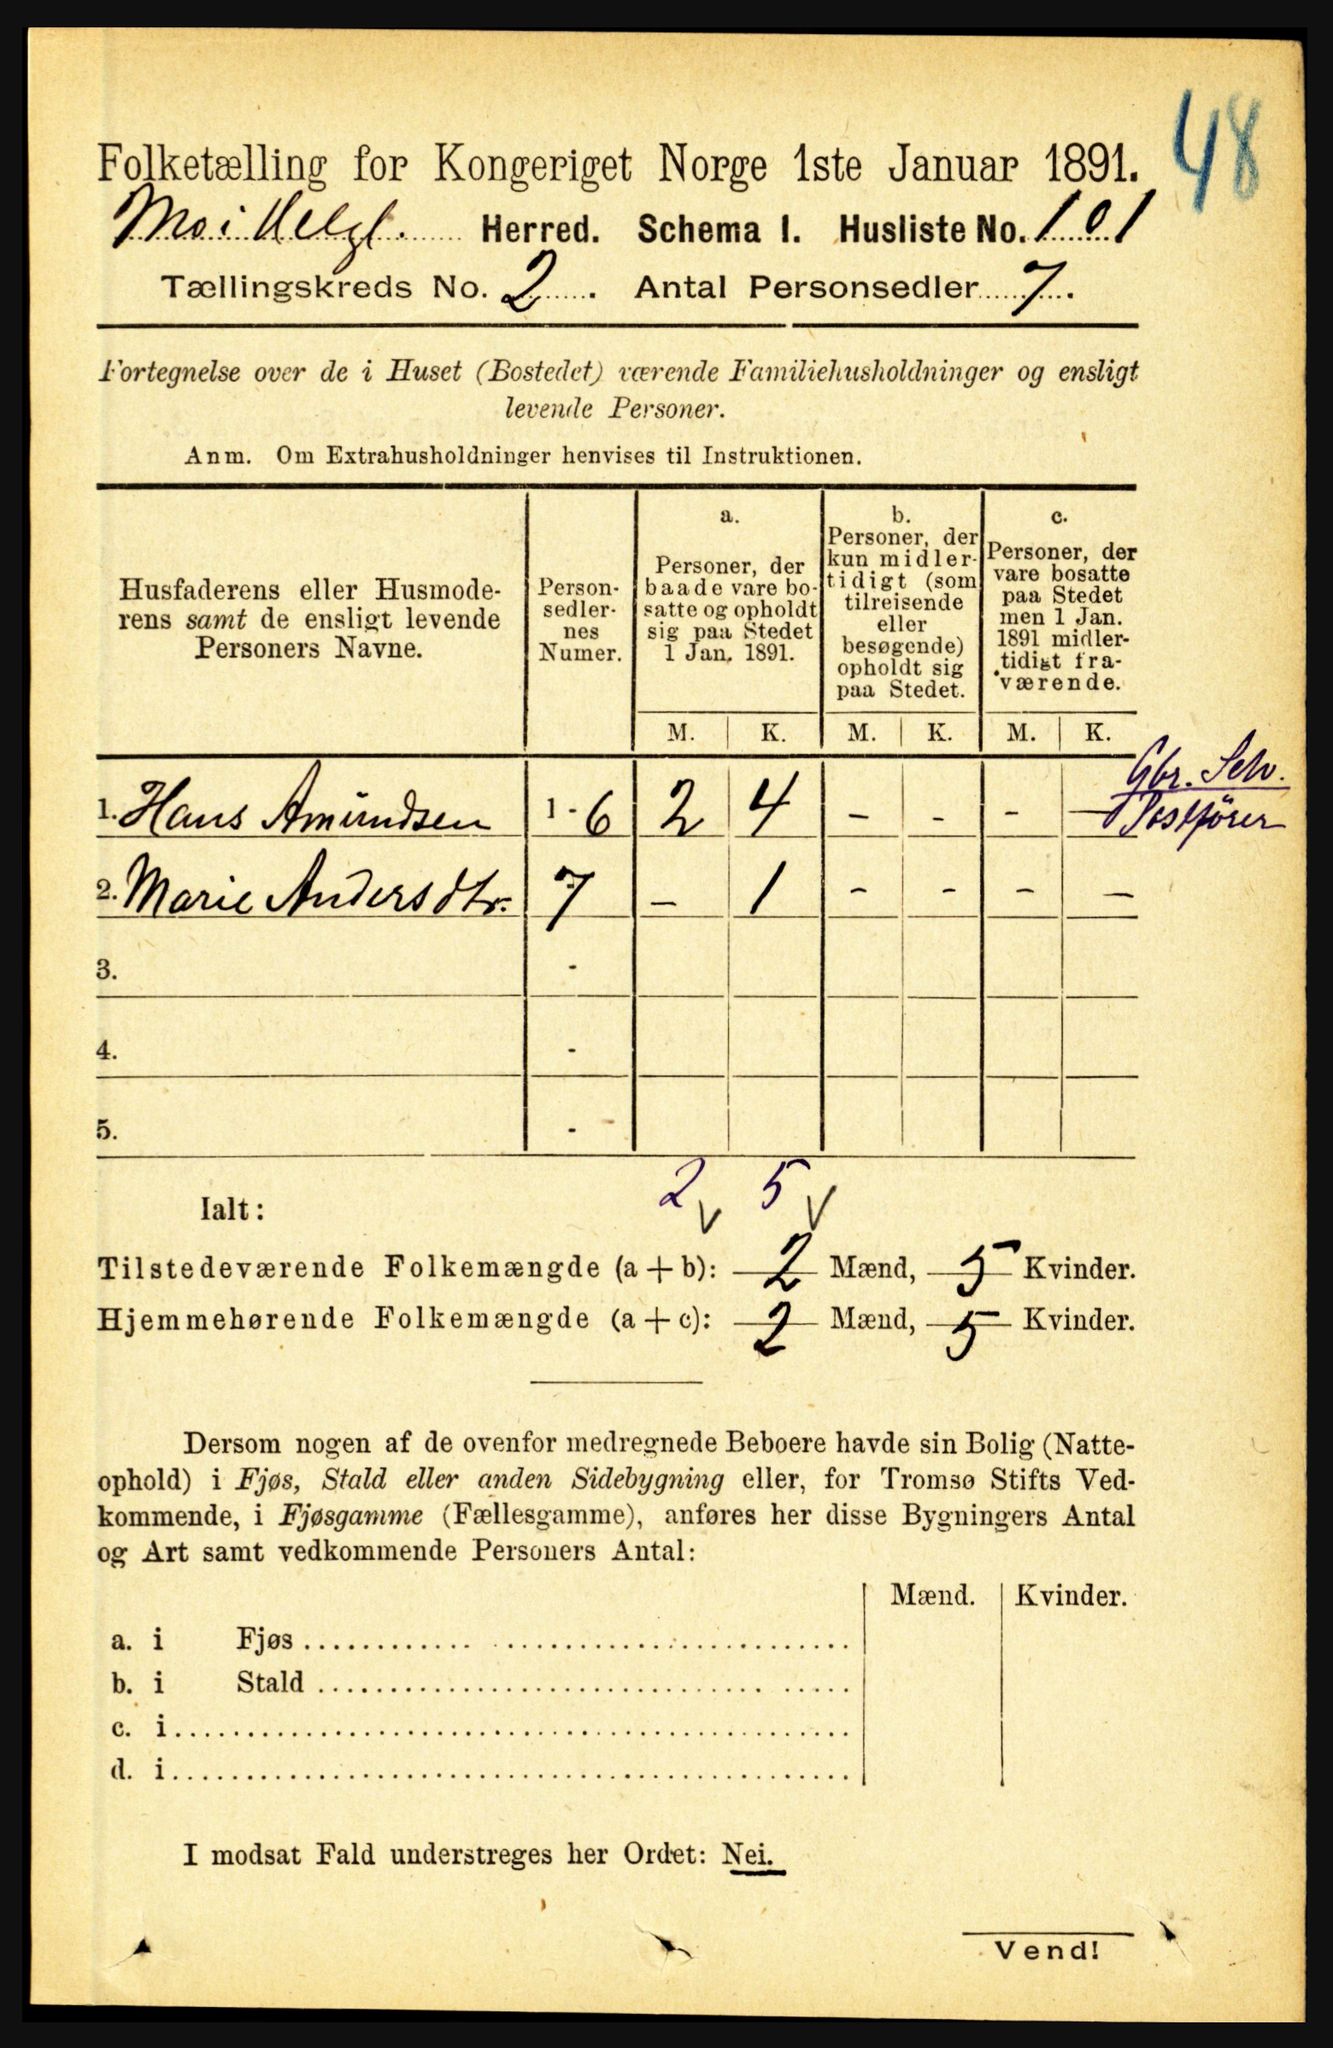 48
Folketælling for Kongeriget Norge 1ste Januar 1891.
Mo i Helgl. Herred. Schema I. Husliste No. 101
Tællingskreds No. 2. Antal Personsedler 7.
Fortegnelse over de i Huset (Bostedet) værende Familiehusholdninger og ensligt
levende Personer.
Anm. Om Extrahusholdninger henvises til Instruktionen.
Husfaderens eller Husmode-
rens samt de ensligt levende
Personers Navne.
Person-
sedler-
nes
Numer.
a.
Personer, der
baade vare bo-
satte og opholdt
sig paa Stedet
1 Jan. 1891.
b.
Personer, der
kun midler-
tidigt (som
tilreisende
eller
besøgende)
opholdt sig
paa Stedet.
c.
Personer, der
vare bosatte
paa Stedet
men 1 Jan.
1891 midler-
tidigt fra-
værende.
M. K. M. K. M. K.
Gbr. Selv.
1. Hans Amundsen 1 - 6 2 4 - - - - Postfører
2. Marie Andersdtr. 7 - 1 - - - -
3. -
4. -
5. -
2 5
Ialt:
Tilstedeværende Folkemængde (a + b): 2 Mænd, 5 Kvinder.
Hjemmehørende Folkemængde (a + c): 2 Mænd, 5 Kvinder.
Dersom nogen af de ovenfor medregnede Beboere havde sin Bolig (Natte-
ophold) i Fjøs, Stald eller anden Sidebygning eller, for Tromsø Stifts Ved-
kommende, i Fjøsgamme (Fællesgamme), anføres her disse Bygningers Antal
og Art samt vedkommende Personers Antal:
Mænd. Kvinder.
a. i Fjøs
b. i Stald
c. i
d. i
I modsat Fald understreges her Ordet: Nei.
Vend!